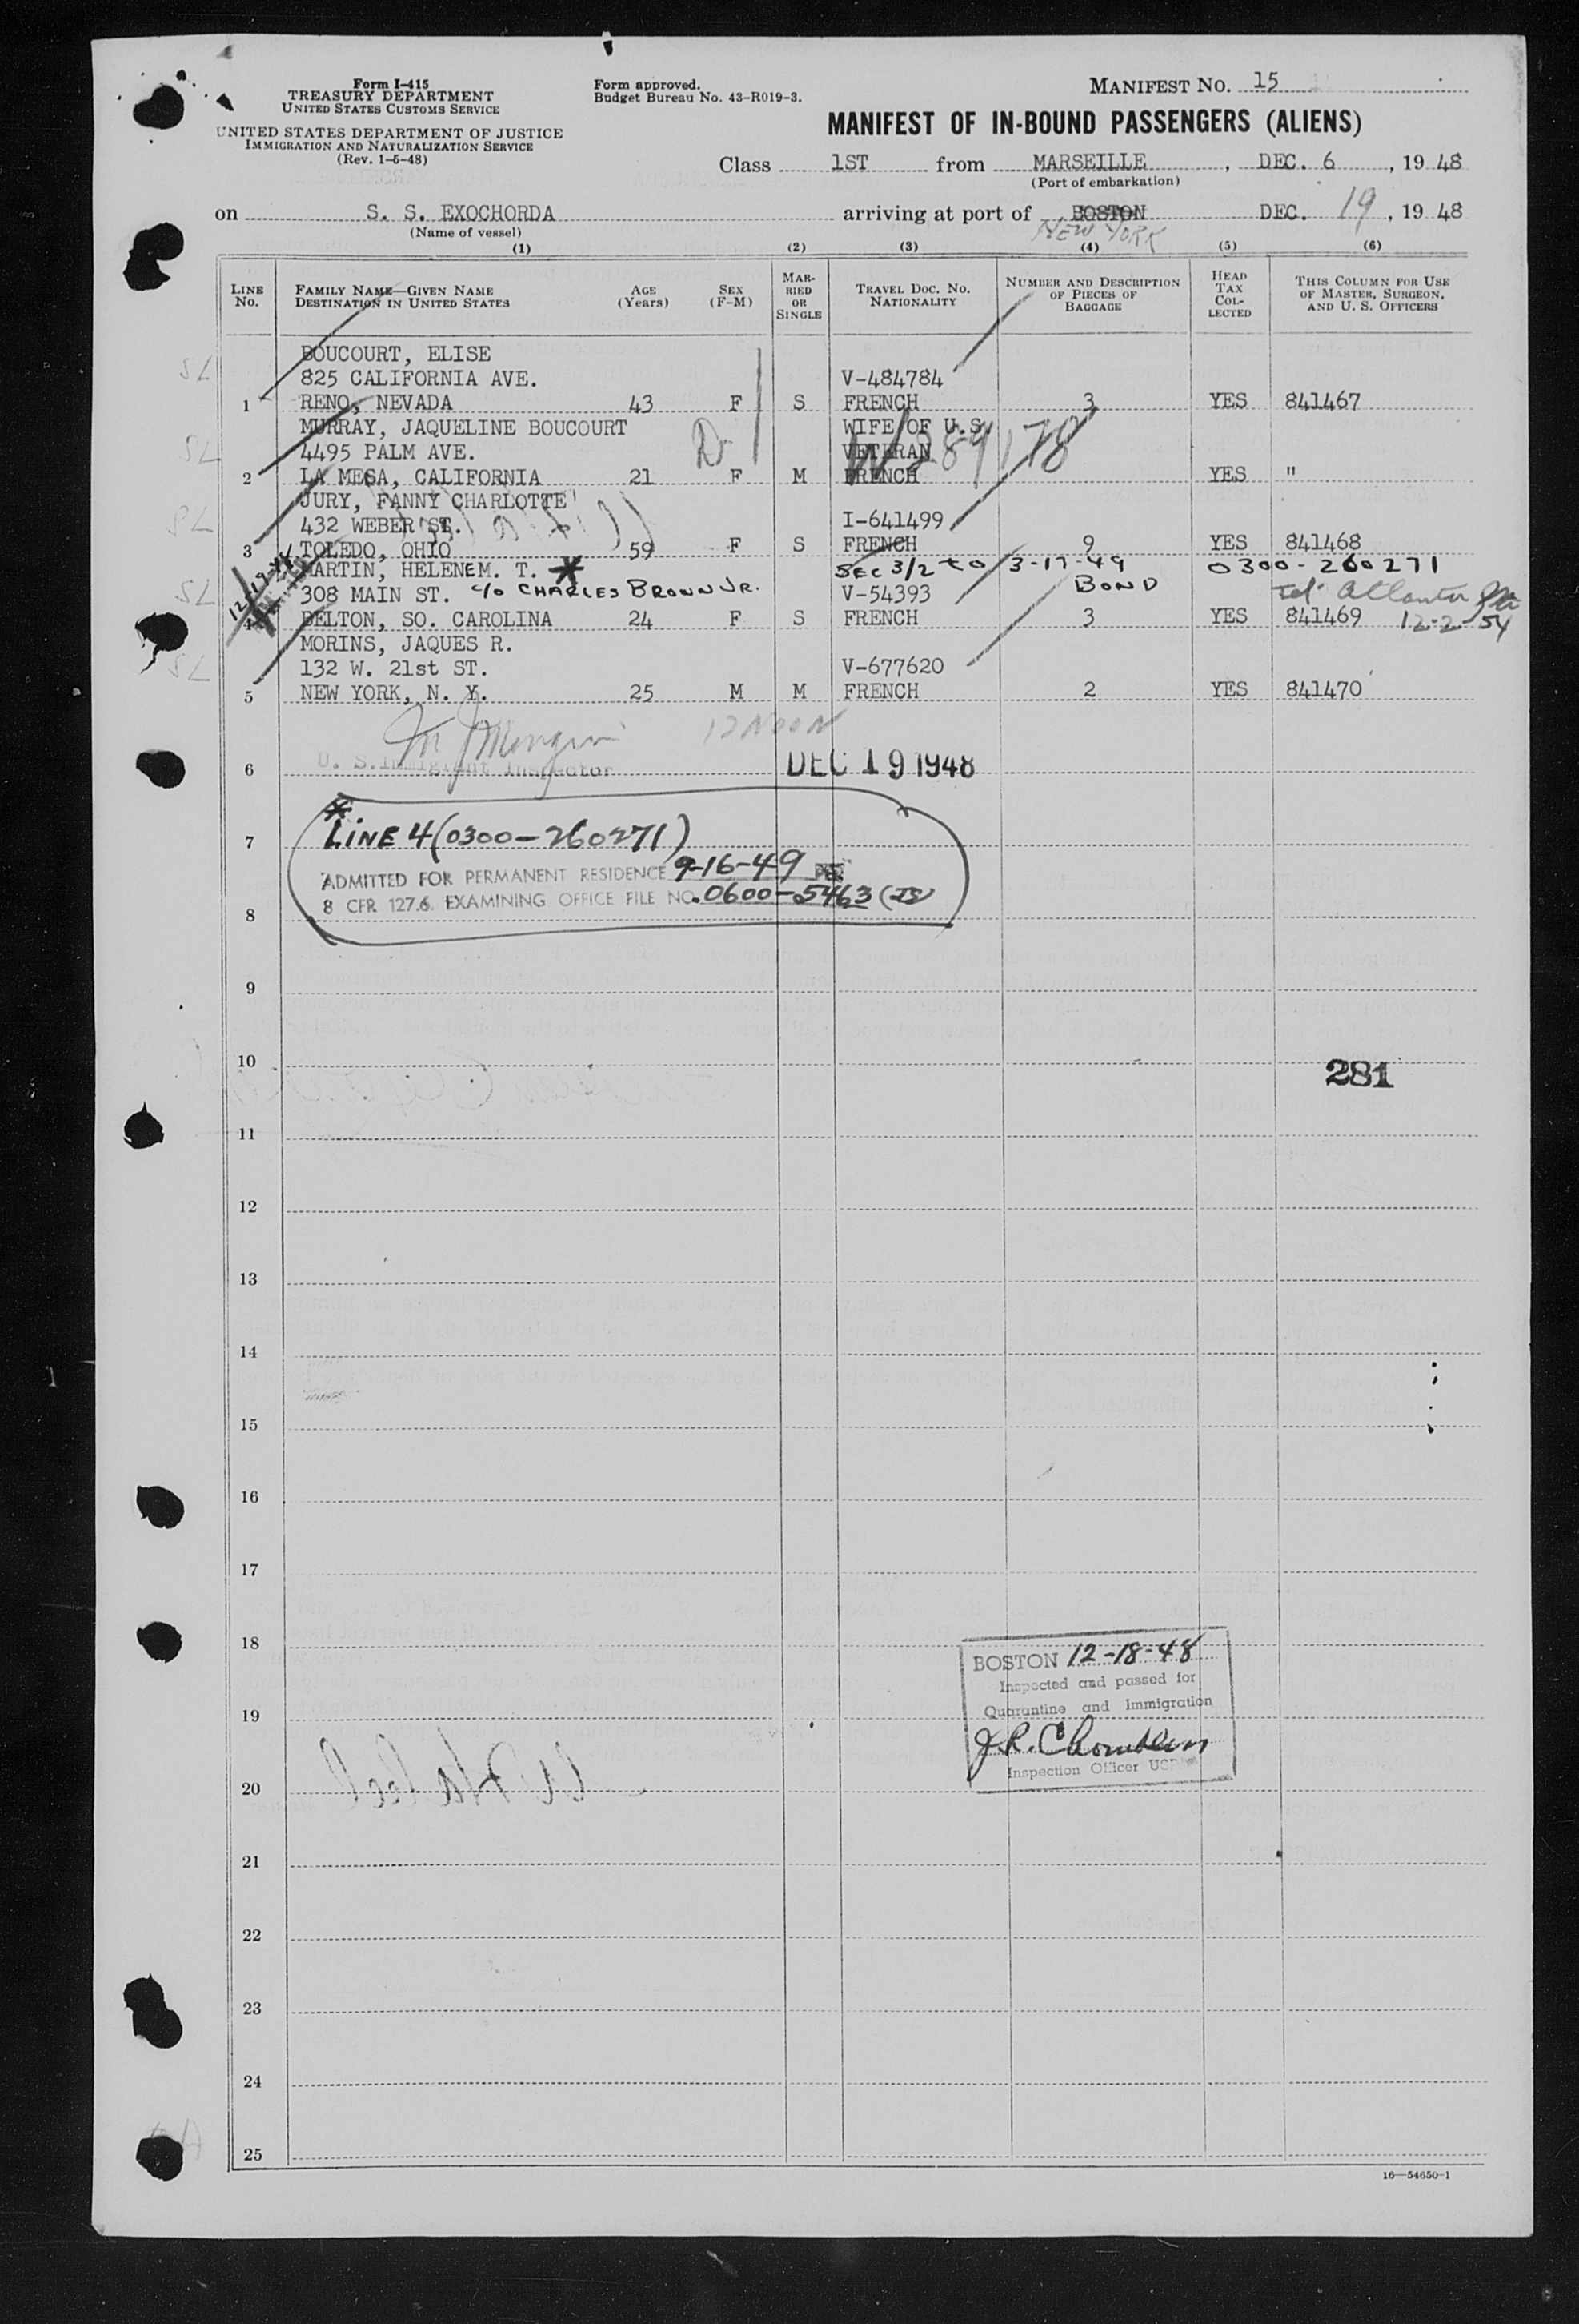 Form I-415
TREASURY DEPARTMENT
UNITED STATES CUSTOMS SERVICE
UNITED STATES DEPARTMENT OF JUSTICE
IMMIGRATION AND NATURALIZATION SERVICE
(Rev. 1-6-48)
Form approved.
Budget Bureau No. 43-R019-3.
MANIFEST NO. 15
MANIFEST OF IN-BOUND PASSENGERS (ALIENS)
Class 1ST from MARSEILLE, DEC. 6, 1948
(Port of embarkation)
on S. S. EXOCHORDA arriving at port of BOSTON DEC. 19, 1948
NEW YORK
(Name of vessel)
(1) (2) (3) (4) (5) (6)
LINE No. FAMILY NAME—GIVEN NAME DESTINATION IN UNITED STATES AGE (Years) SEX (F-M) MARRIED OR SINGLE TRAVEL DOC. NO. NATIONALITY NUMBER AND DESCRIPTION OF PIECES OF BAGGAGE HEAD TAX COLLECTED THIS COLUMN FOR USE OF MASTER, SURGEON, AND U. S. OFFICERS
BOUCOURT, ELISE
825 CALIFORNIA AVE. V-484784
1 RENO, NEVADA 43 F S FRENCH 3 YES 841467
MURRAY, JAQUELINE BOUCOURT WIFE OF U.S.
4495 PALM AVE. VETERAN W 289178
2 LA MESA, CALIFORNIA 21 F M FRENCH YES "
JURY, FANNY CHARLOTTE
432 WEBER ST. I-641499
3 TOLEDO, OHIO 59 F S FRENCH 9 YES 841468
MARTIN, HELENE M. T. * SEC 3/2 to 3-17-49 0300-260271
308 MAIN ST. c/o CHARLES BROWN JR. V-54393 BOND Atlanta
4 BELTON, SO. CAROLINA 24 F S FRENCH 3 YES 841469 12-2-54
MORINS, JAQUES R.
132 W. 21st ST. V-677620
5 NEW YORK, N. Y. 25 M M FRENCH 2 YES 841470
12 NOON
6 U. S. Immigrant Inspector DEC 19 1948
*
7 LINE 4 (0300-260271)
ADMITTED FOR PERMANENT RESIDENCE 9-16-49
8 8 CFR 127.6. EXAMINING OFFICE FILE NO. 0600-5463
9
10
281
11
12
13
14
15
16
17
18
BOSTON 12-18-48
Inspected and passed for
Quarantine and Immigration
19
J.R. Chamblin
Inspection Officer
20
21
22
23
24
25
16—54650-1